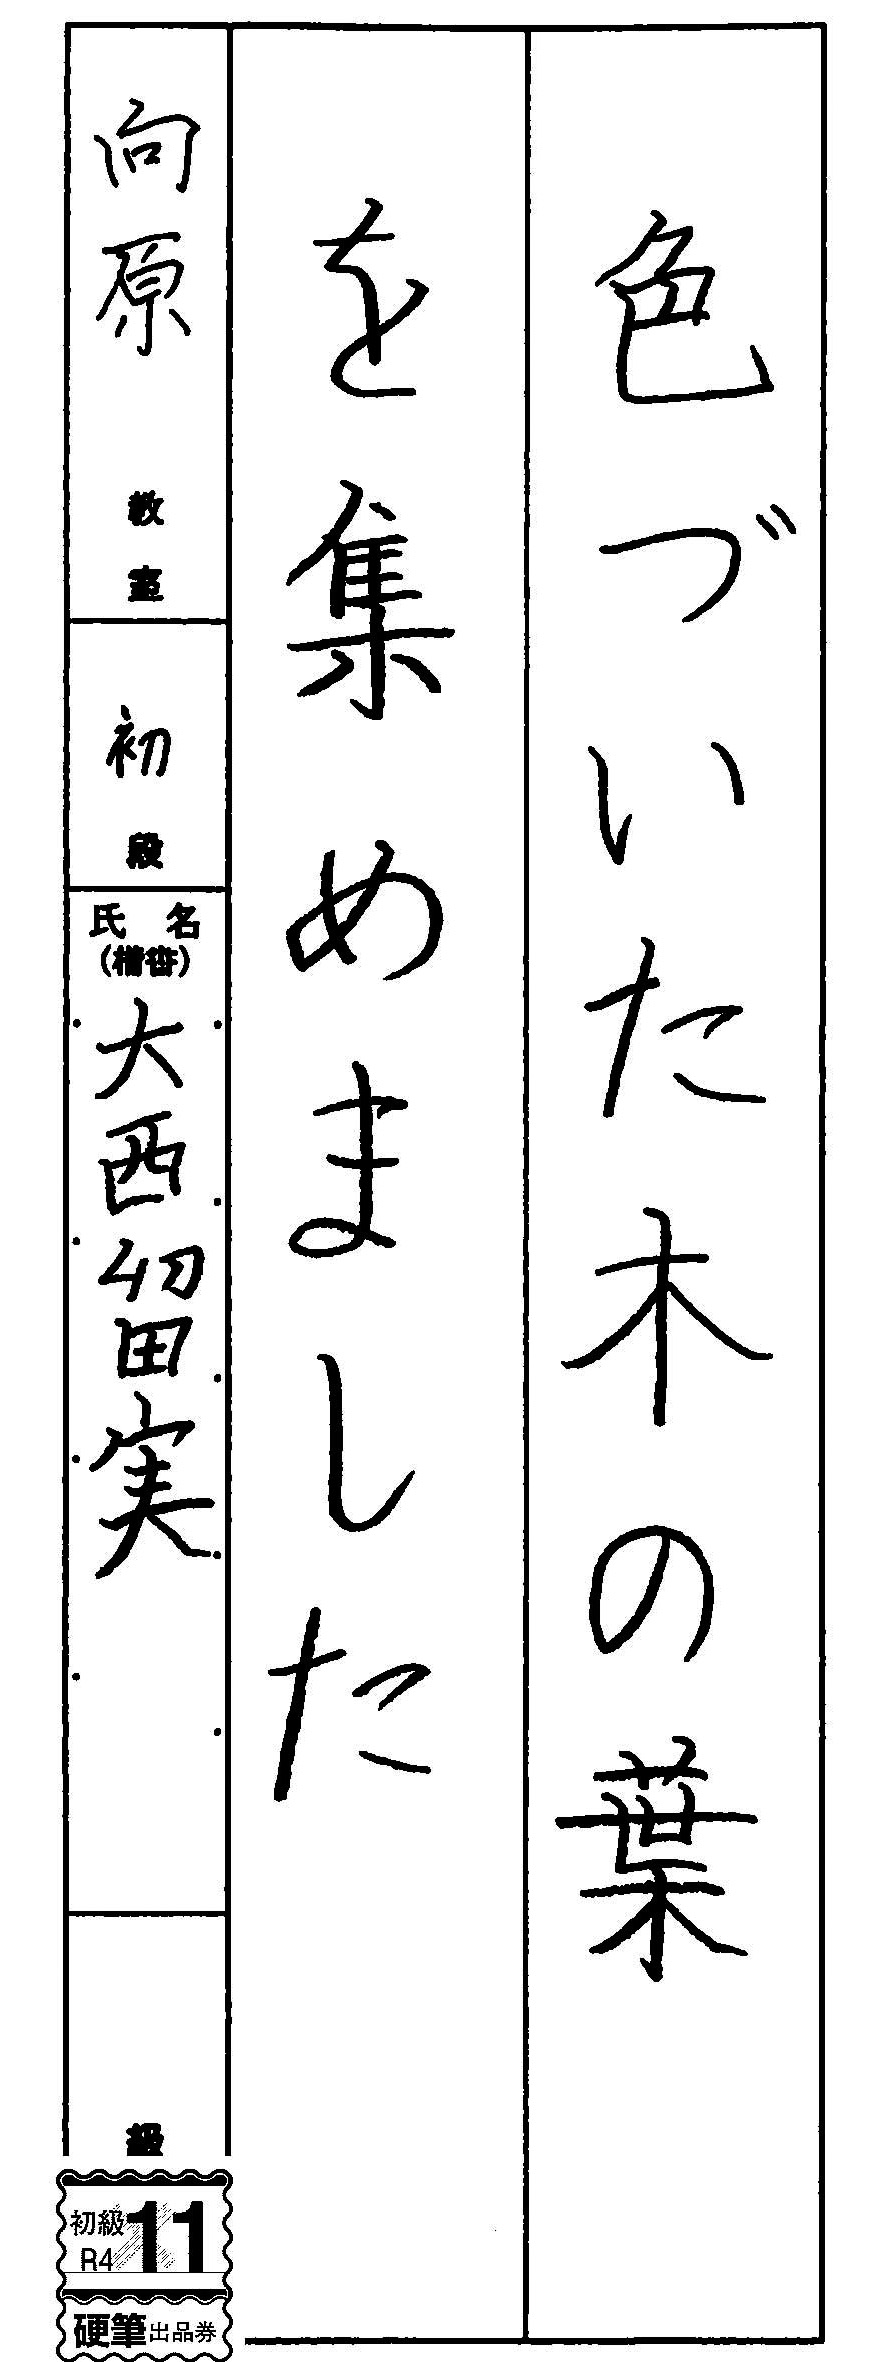 色づいた木の葉
を集めました
向原 教室
初段
氏名
(楷書)
大西留実
級
初級
R4
11
硬筆出品券